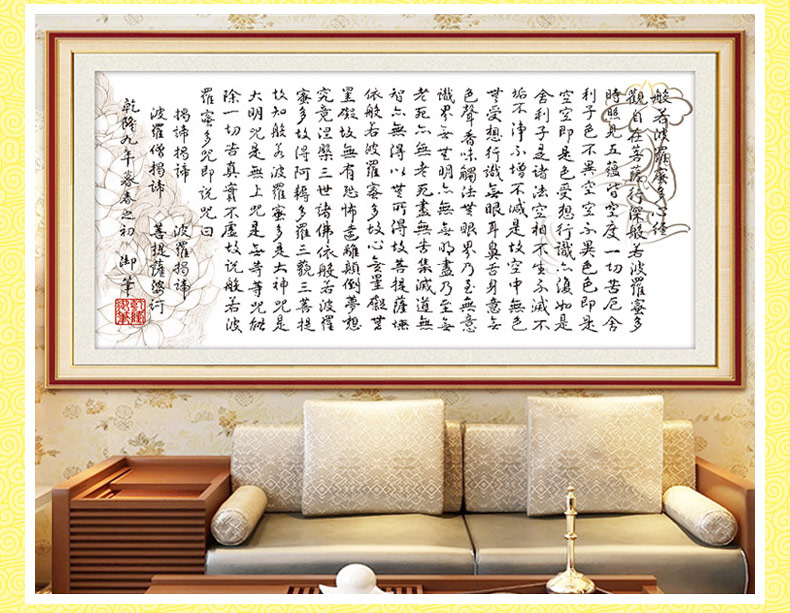 般若波羅蜜多心經
觀自在菩薩行深般若波羅蜜多
時照見五蘊皆空度一切苦厄舍
利子色不異空空不異色色即是
空空即是色受想行識亦復如是
舍利子是諸法空相不生不滅不
垢不淨不增不減是故空中無色
無受想行識無眼耳鼻舌身意無
色聲香味觸法無眼界乃至無意
識界無無明亦無無明盡乃至無
老死亦無老死盡無苦集滅道無
智亦無得以無所得故菩提薩埵
依般若波羅蜜多故心無罣礙無
罣礙故無有恐怖遠離顛倒夢想
究竟涅槃三世諸佛依般若波羅
蜜多故得阿耨多羅三藐三菩提
故知般若波羅蜜多是大神咒是
大明咒是無上咒是無等等咒能
除一切苦真實不虛故說般若波
羅蜜多咒即說咒曰
揭諦揭諦 波羅揭諦
波羅僧揭諦 菩提薩婆訶
乾隆九年暮春之初 御筆